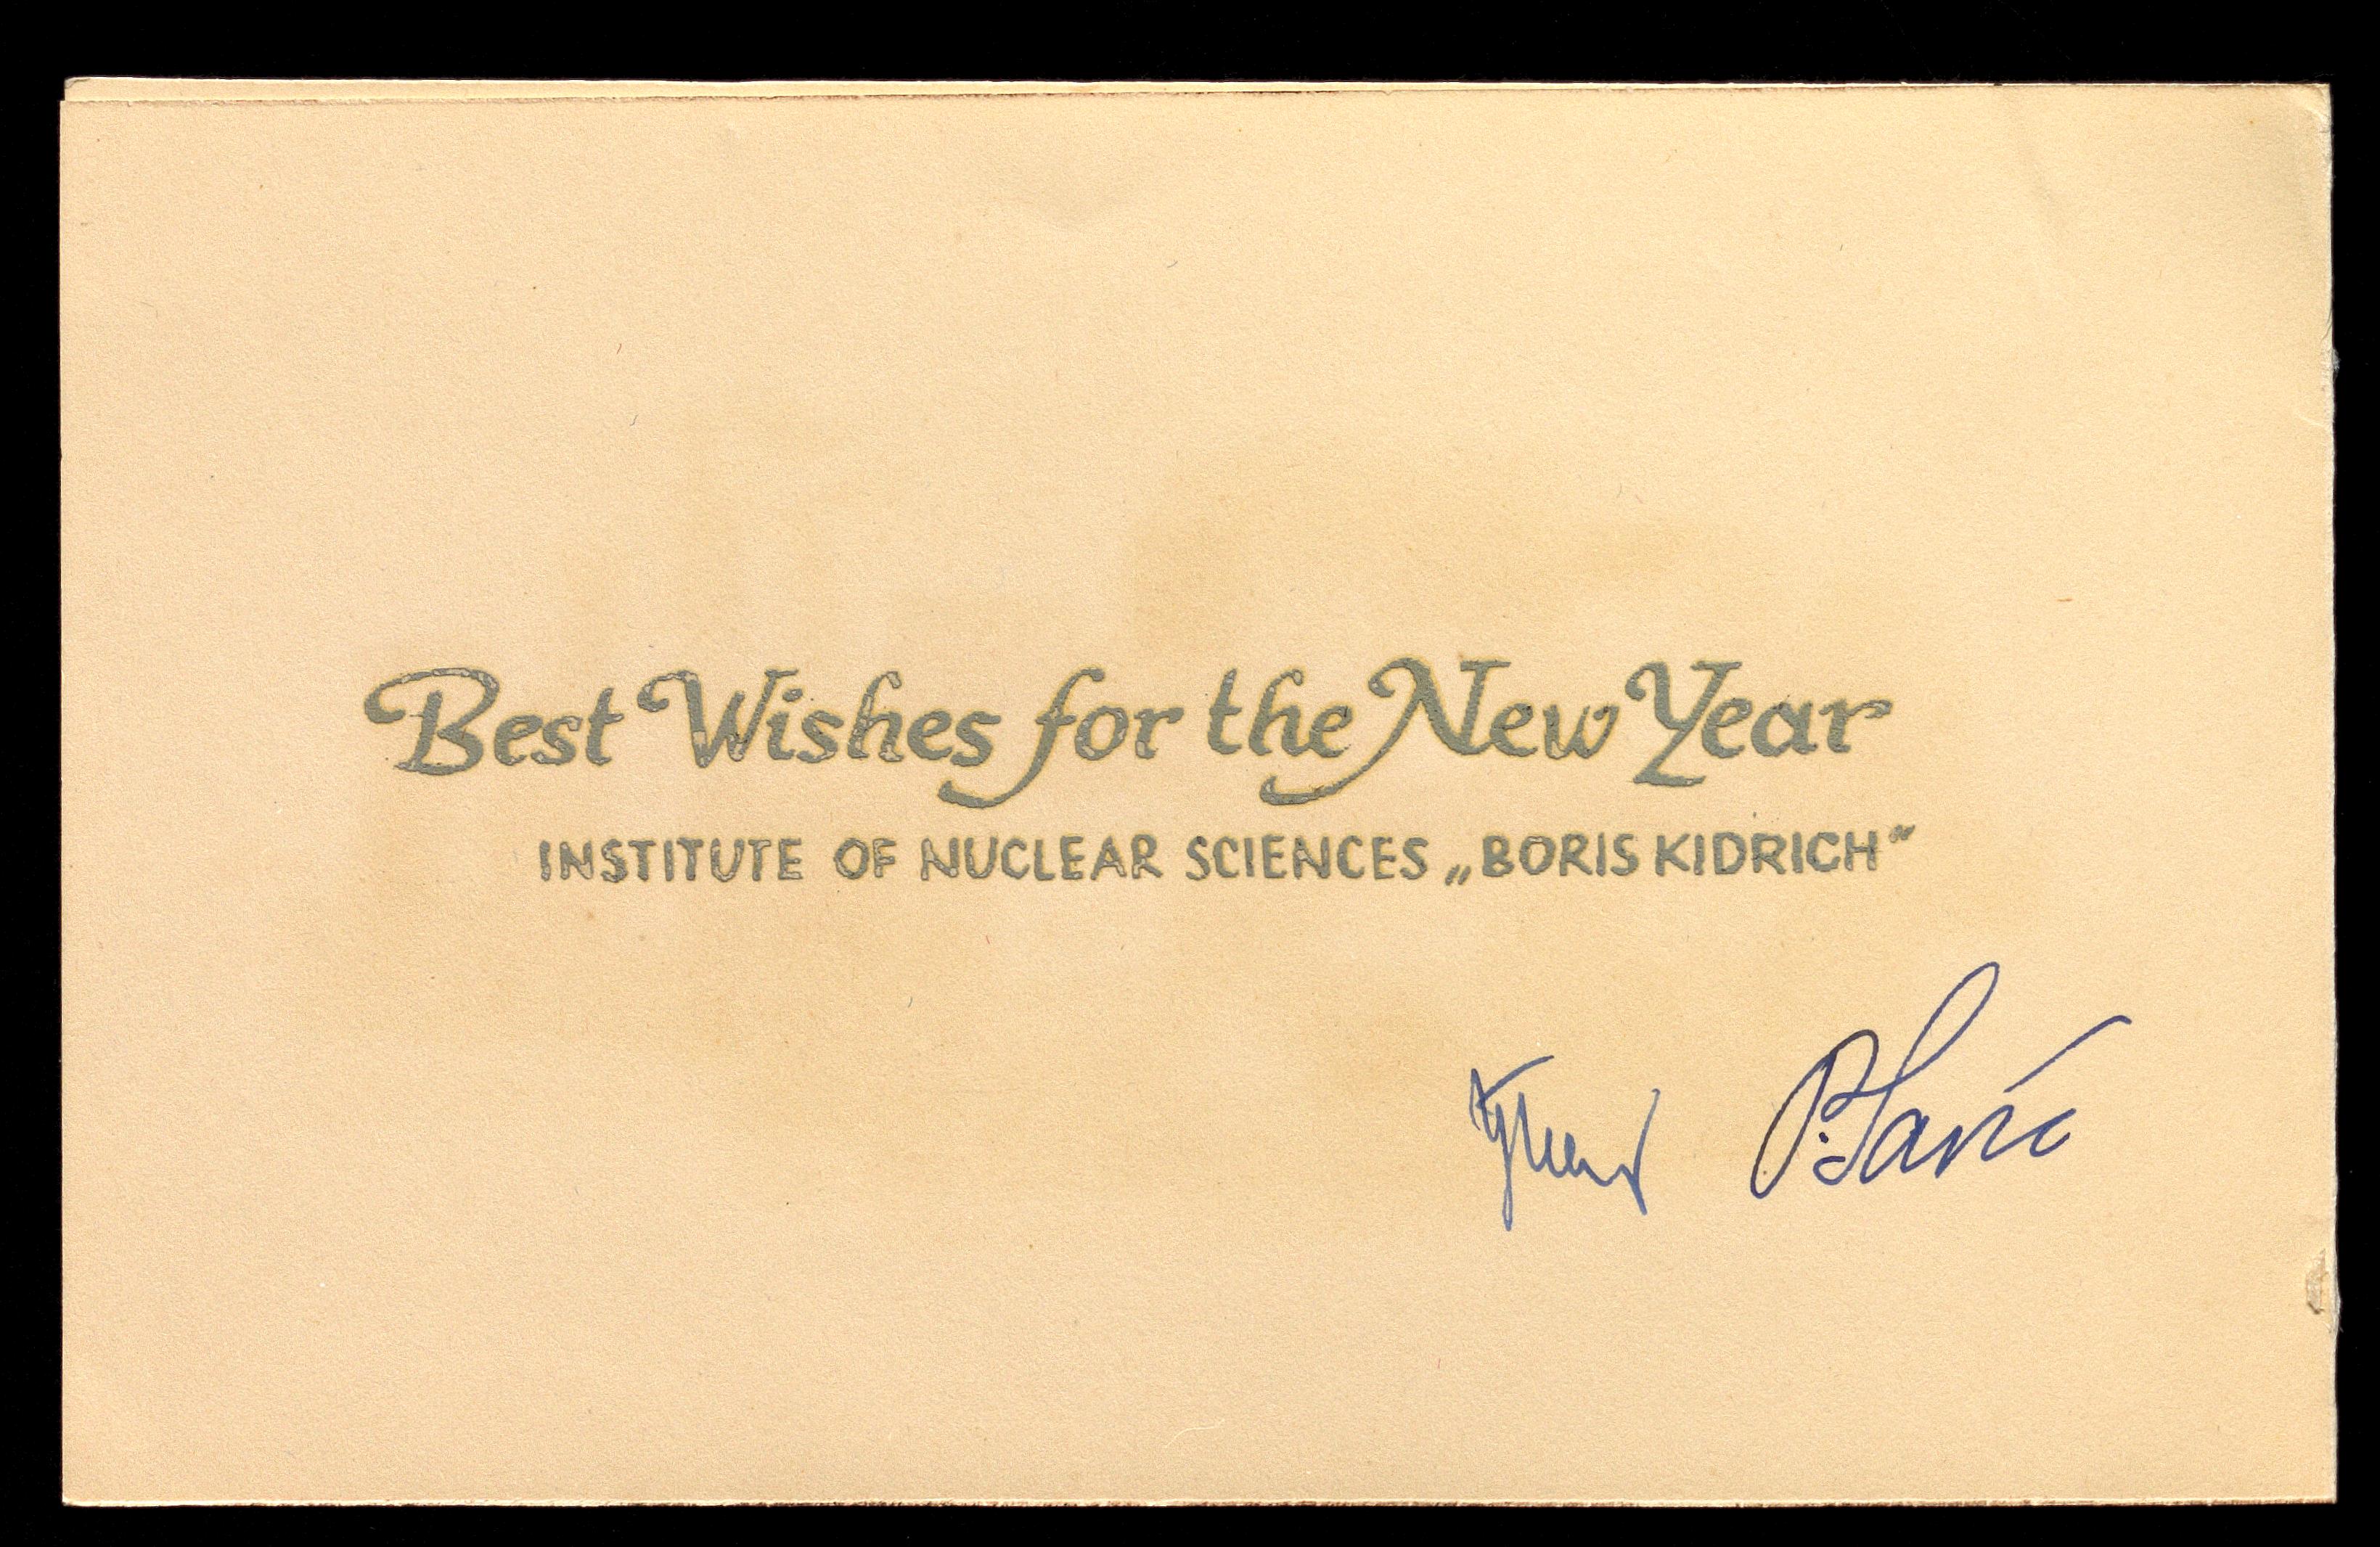 Best Wishes for the New Year
INSTITUTE OF NUCLEAR SCIENCES „BORIS KIDRICH“